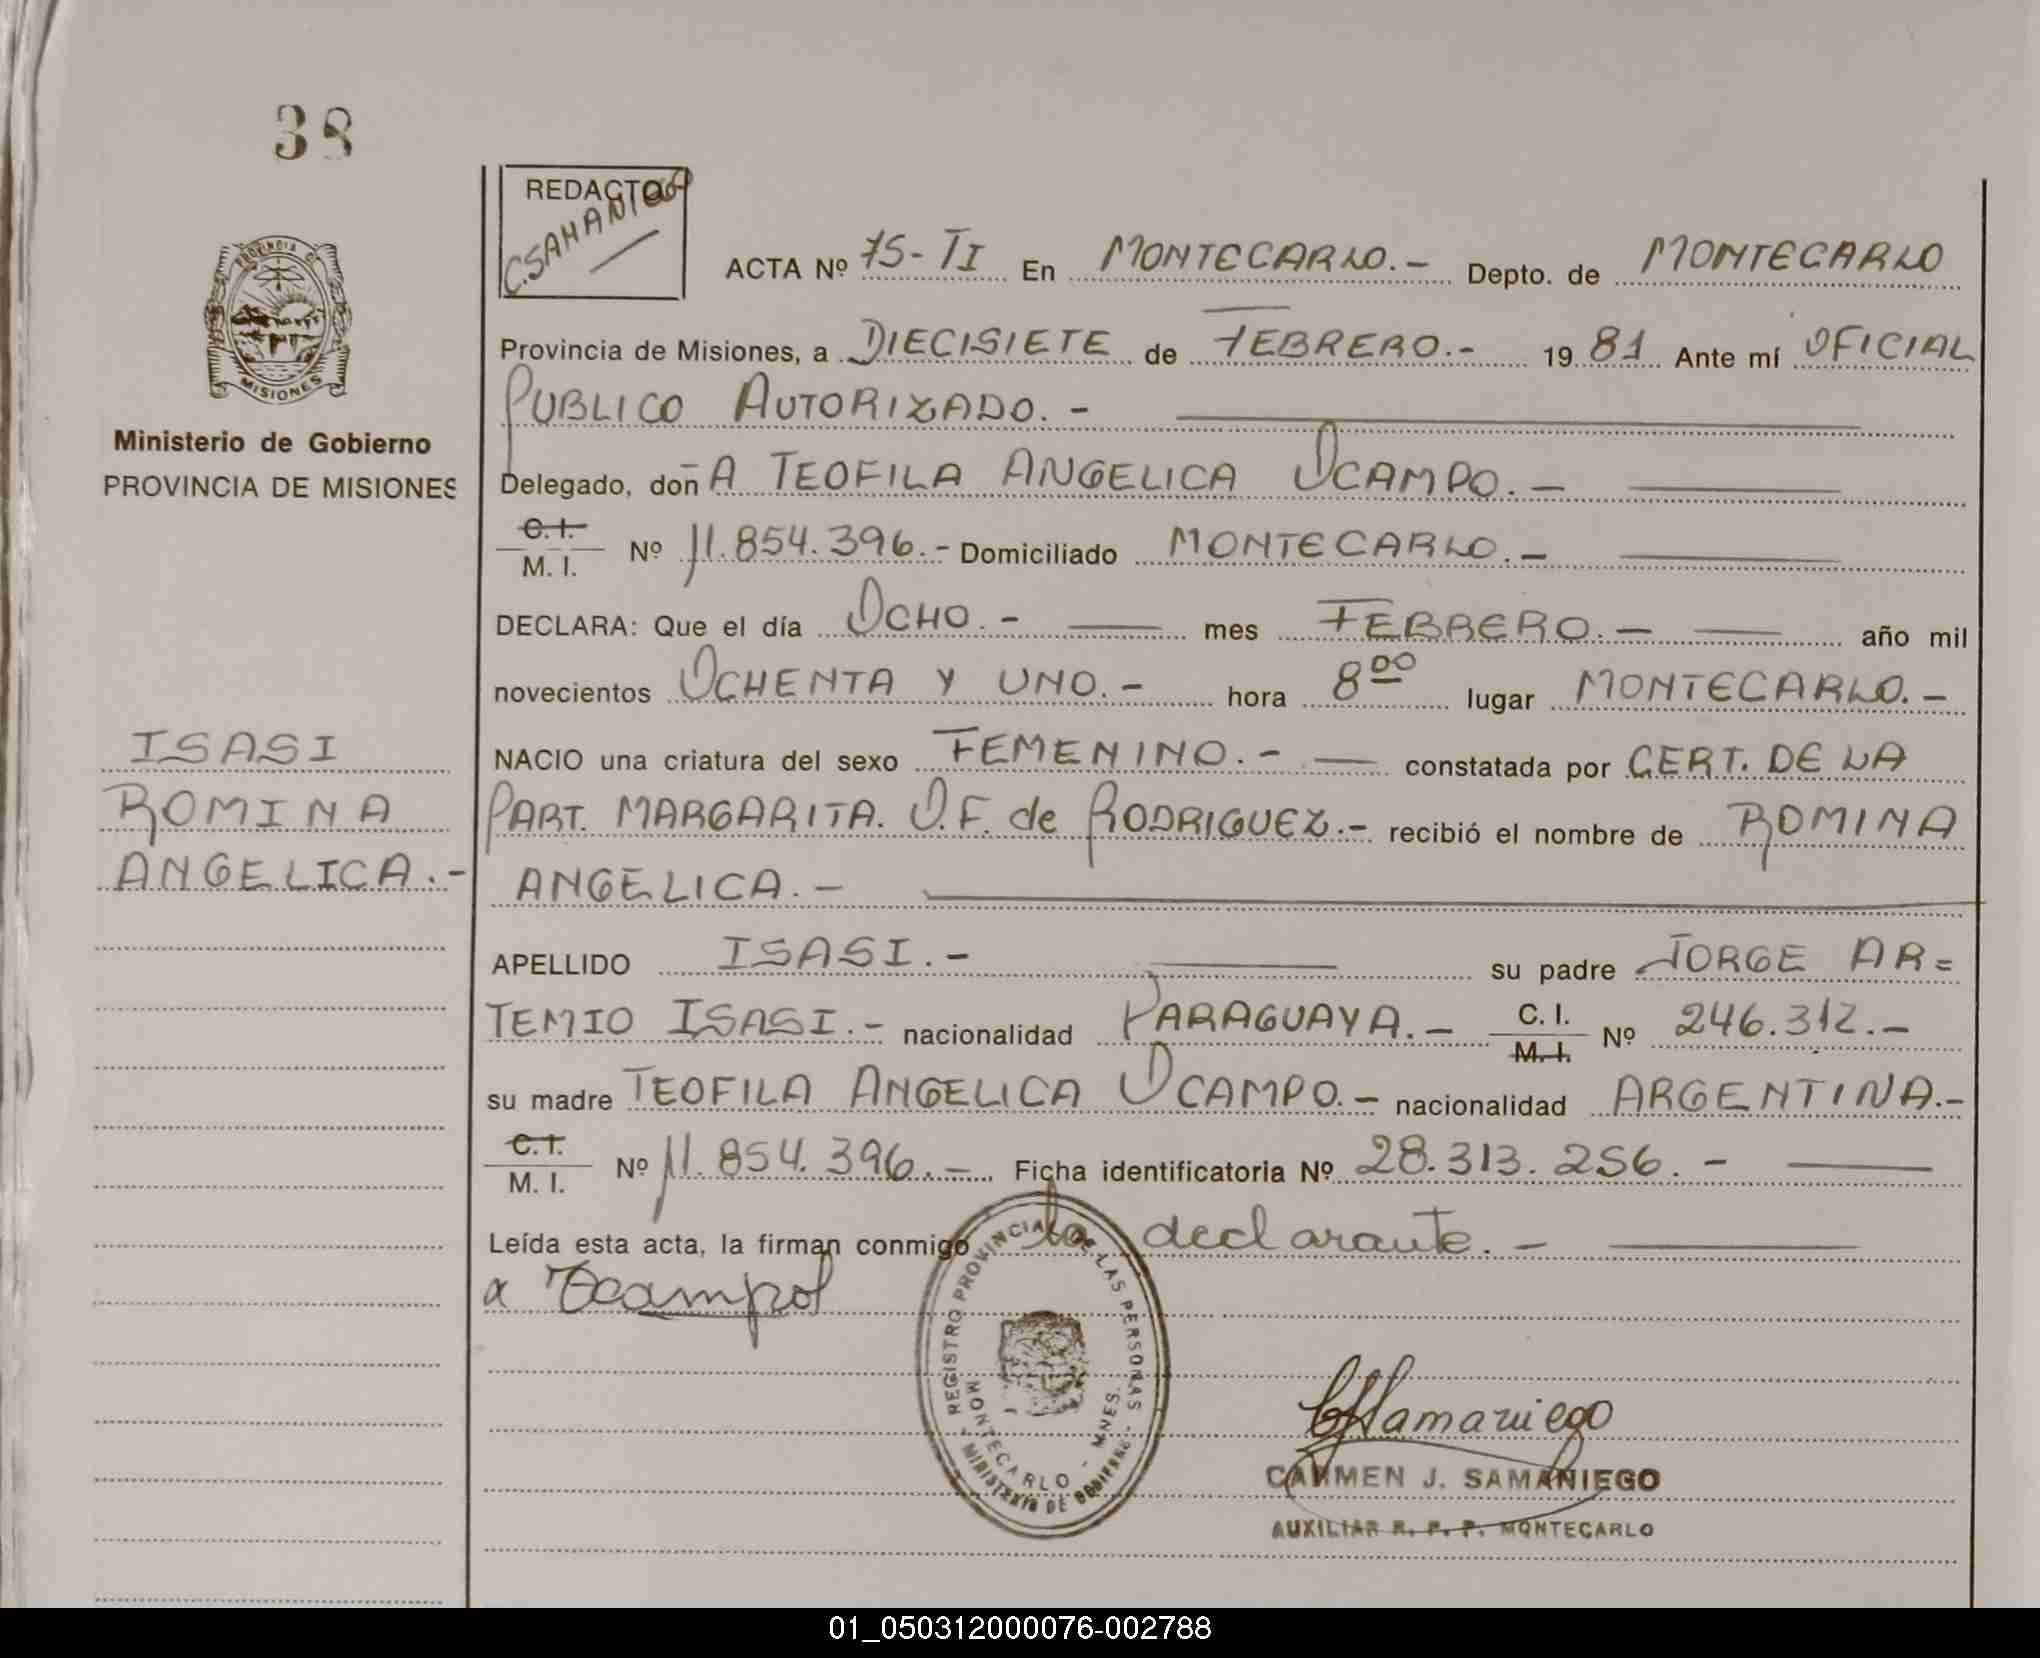 38
REDACTO
C.SAMANIEGO
PROVINCIA DE
MISIONES
Ministerio de Gobierno
PROVINCIA DE MISIONES
ISASI
ROMINA
ANGELICA.-
ACTA Nº 75-TI En MONTECARLO.- Depto. de MONTECARLO
Provincia de Misiones, a DIECISIETE de FEBRERO.- 1981 Ante mí OFICIAL
PUBLICO AUTORIZADO.-
Delegado, doñA TEOFILA ANGELICA OCAMPO.-
C.I.
M. I. Nº 11.854.396.- Domiciliado MONTECARLO.-
DECLARA: Que el día OCHO.- mes FEBRERO.- año mil
novecientos OCHENTA Y UNO.- hora 8 00 lugar MONTECARLO.-
NACIO una criatura del sexo FEMENINO.- constatada por CERT. DE LA
PART. MARGARITA. O.F. de RODRIGUEZ.- recibió el nombre de ROMINA
ANGELICA.-
APELLIDO ISASI.- su padre JORGE AR=
TEMIO ISASI.- nacionalidad PARAGUAYA.- C. I. Nº 246.312.-
M.I.
su madre TEOFILA ANGELICA OCAMPO.- nacionalidad ARGENTINA.-
C.I.
M. I. Nº 11.854.396.- Ficha identificatoria Nº 28.313.256.-
Leída esta acta, la firman conmigo la declarante.-
x Ocampo
REGISTRO PROVINCIAL DE LAS PERSONAS
MONTECARLO - MNES.
MINISTERIO DE GOBIERNO
CSamaniego
CARMEN J. SAMANIEGO
AUXILIAR R. P. P. MONTECARLO
01_050312000076-002788